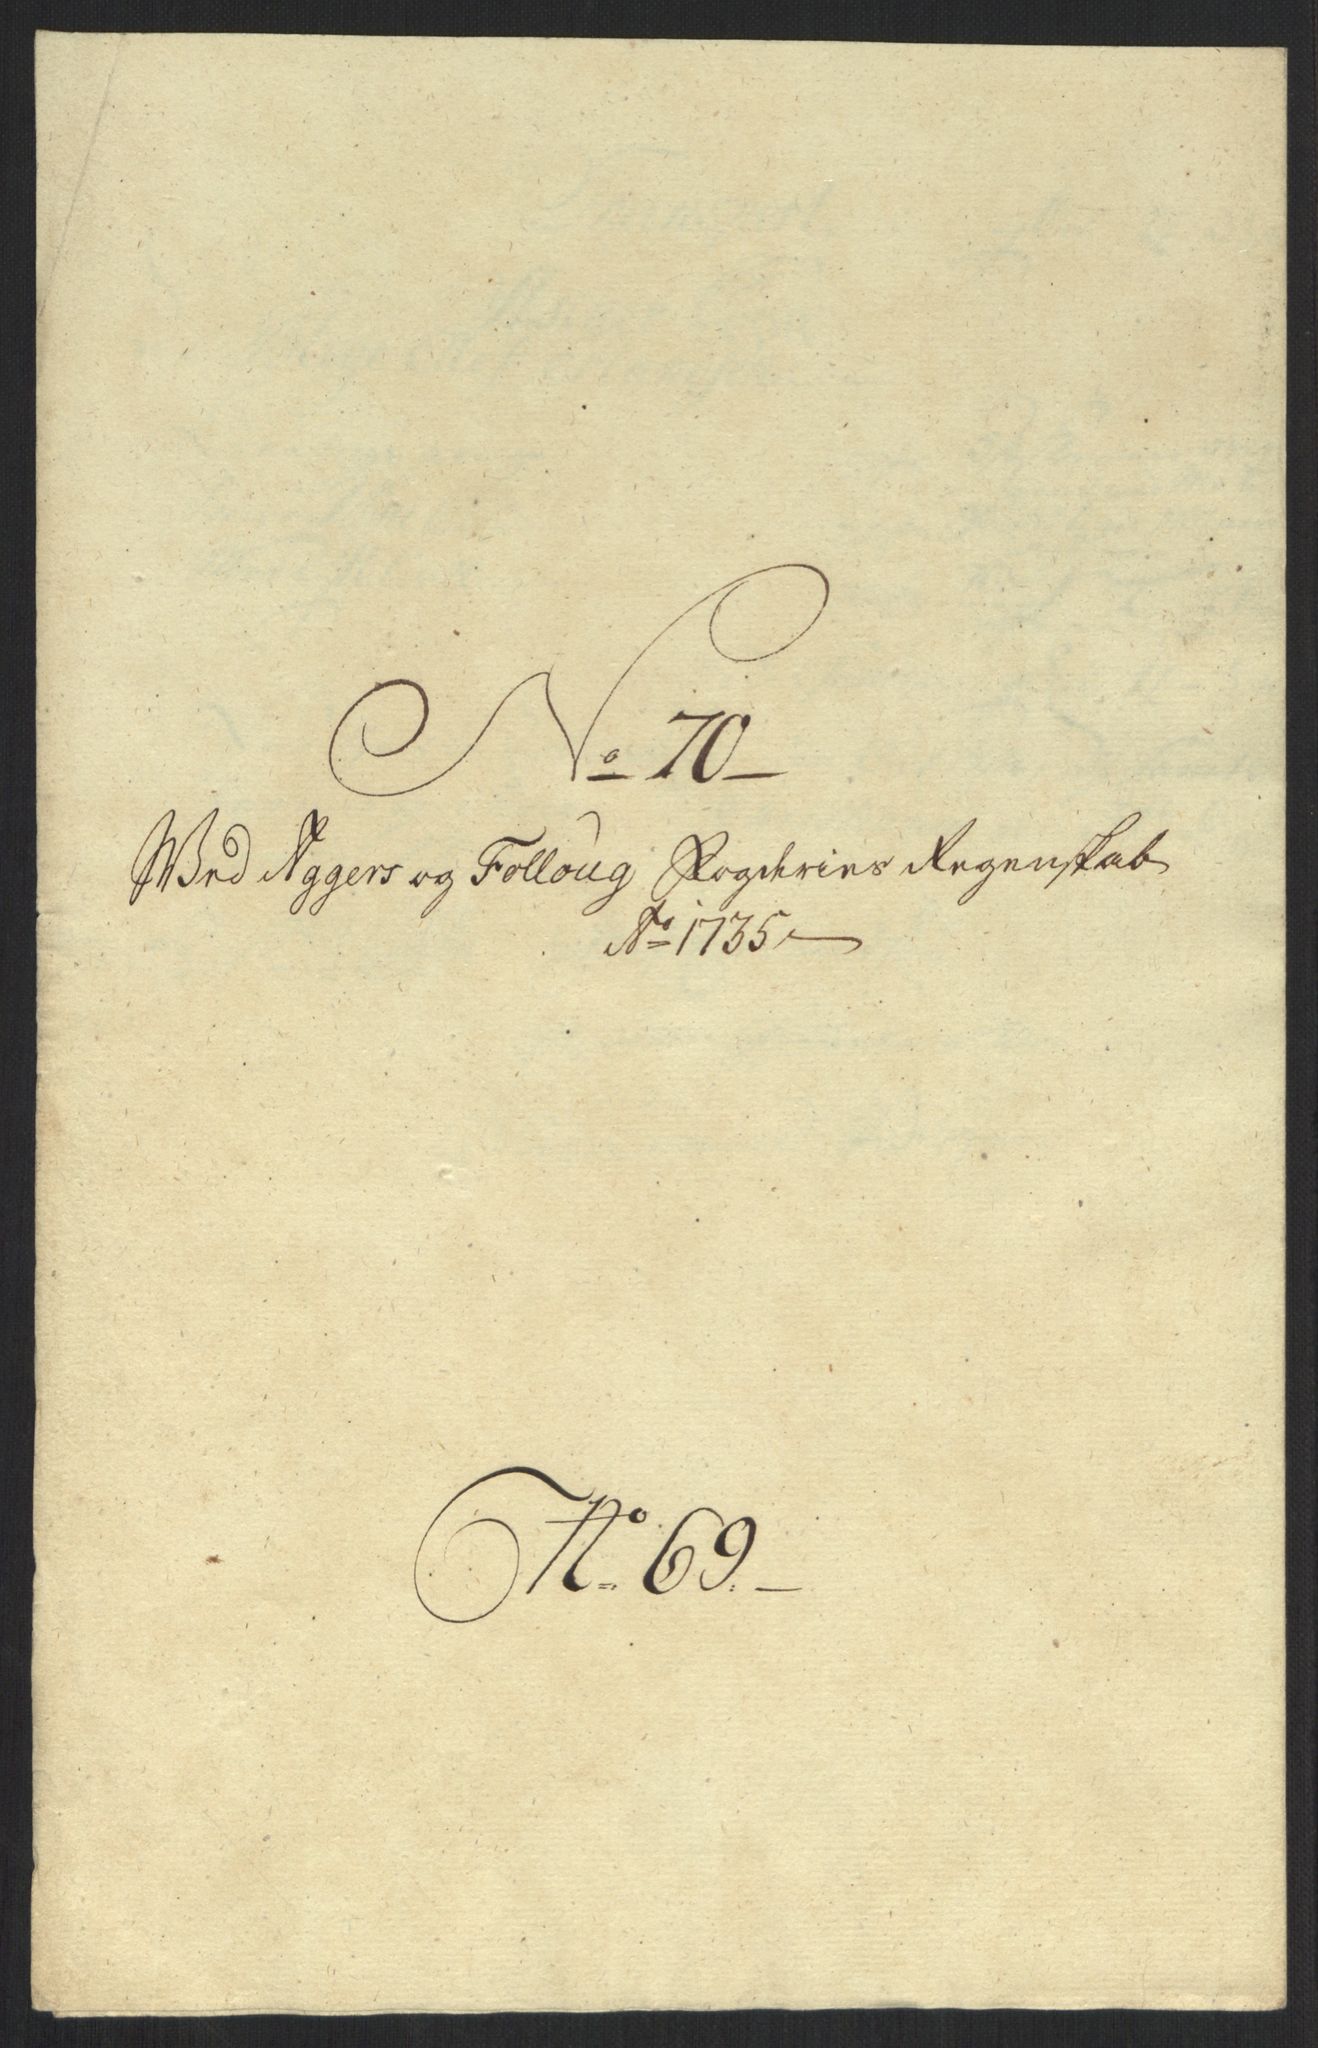 No 70
Wed Aggers og Folloug Fogderies Regenskab
Ao 1735
No 69.